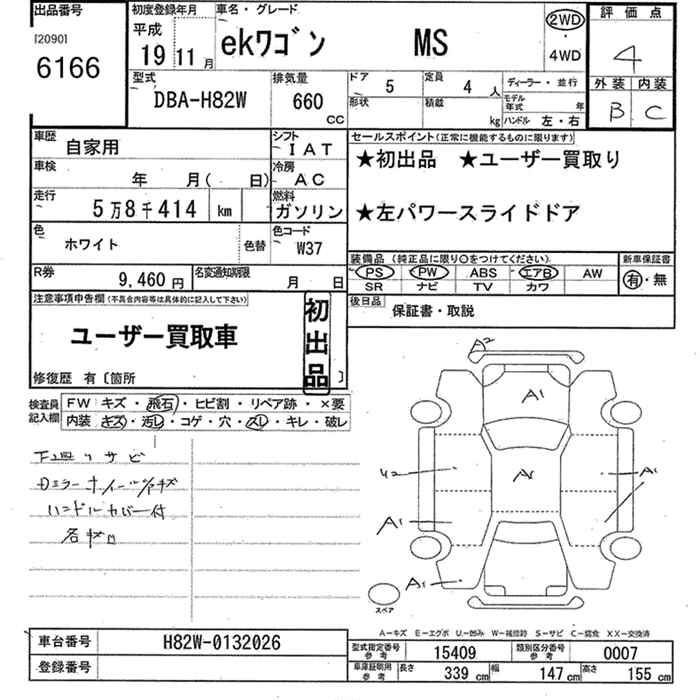 出品番号
[2090]
6166
初度登録年月
平成
19 11 月
車名・グレード
ekワゴン MS
2WD
・
4WD
評価点
4
外装 内装
B C
型式
DBA-H82W
排気量
660
CC
ドア 5
形状
定員 4 人
積載 kg
ディーラー・並行
モデル年式 年
ハンドル 左・右
車歴 自家用
車検 年 月( 日)
走行 5万8千414 km
シフト IAT
冷房 AC
燃料 ガソリン
色 ホワイト 色替
色コード W37
R券 9,460 円
名変通知期限 月 日
セールスポイント(正常に機能するものに限ります)
★初出品 ★ユーザー買取り
★左パワースライドドア
装備品(純正品に限り○をつけてください)
PS PW ABS エアB AW
SR ナビ TV カワ
新車保証書
有・無
後日品 保証書・取説
注意事項申告欄(不具合内容等は具体的に記入して下さい)
ユーザー買取車
初出品
修復歴 有〔箇所 〕
検査員記入欄
FW キズ・飛石・ヒビ割・リペア跡・×要
内装 キズ・汚レ・コゲ・穴・スレ・キレ・破レ
下廻りサビ
ハンドルカバー付
A2
A1
A1
A1
A1
A1
スペア
A-キズ E-エクボ U-凹み W-補修跡 S-サビ C-腐食 XX-交換済
車台番号 H82W-0132026
登録番号
型式指定番号 参考 15409
類別区分番号 参考 0007
車庫証明用 参考 長さ 339 cm 幅 147 cm 高さ 155 cm